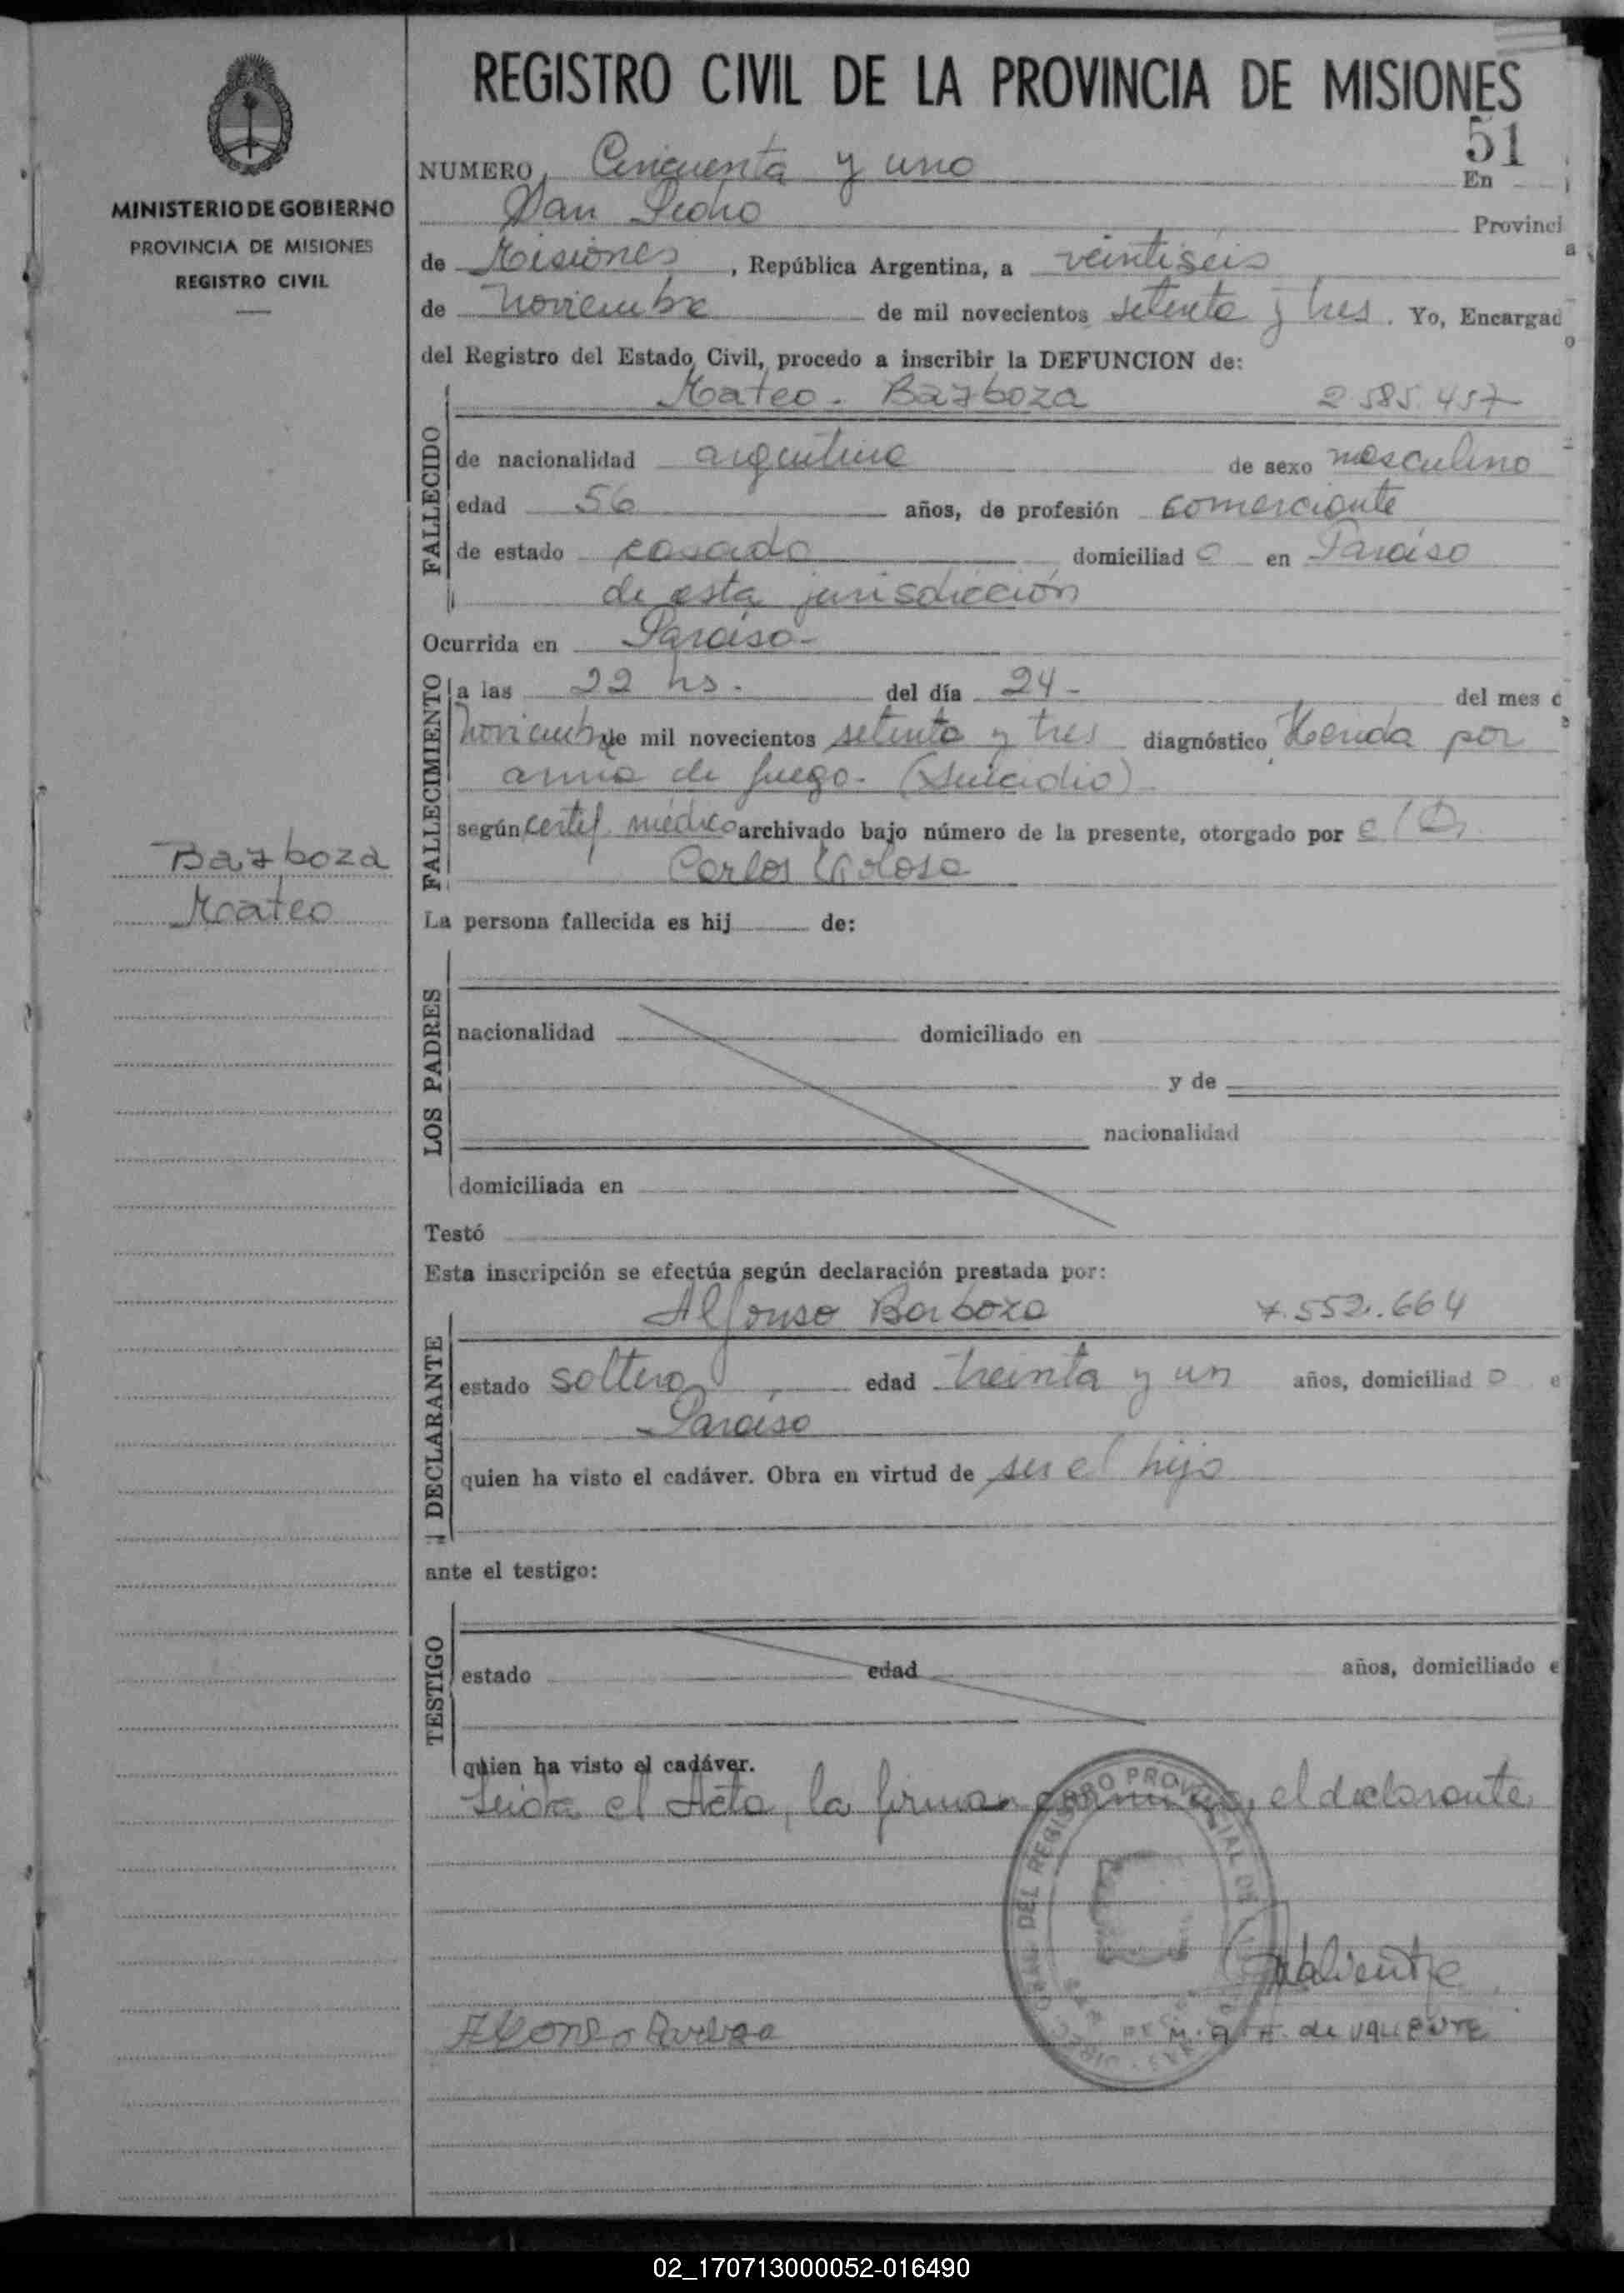 REGISTRO CIVIL DE LA PROVINCIA DE MISIONES
51
MINISTERIO DE GOBIERNO
PROVINCIA DE MISIONES
REGISTRO CIVIL
NUMERO Cincuenta y uno En
San Pedro Provinci
a
de Misiones, República Argentina, a veintiseis
de noviembre de mil novecientos setenta y tres. Yo, Encargad
o
del Registro del Estado Civil, procedo a inscribir la DEFUNCION de:
FALLECIDO
Mateo - Barboza 2.585.457
de nacionalidad argentina de sexo masculino
edad 56 años, de profesión comerciante
de estado casado domiciliado en Paraiso
de esta jurisdicción
Ocurrida en Paraiso-
FALLECIMIENTO
a las 22 hs. del día 24- del mes d
e
noviembre de mil novecientos setenta y tres diagnóstico Herida por
arma de fuego. (Suicidio)
según certif. médico archivado bajo número de la presente, otorgado por el Dr.
Carlos
Barboza
Mateo
La persona fallecida es hij de:
LOS PADRES
nacionalidad domiciliado en
y de
nacionalidad
domiciliada en
Testó
Esta inscripción se efectúa según declaración prestada por:
DECLARANTE
Alfonso Barboza 7.552.664
estado soltero, edad treinta y un años, domiciliado e
Paraiso
quien ha visto el cadáver. Obra en virtud de ser el hijo
ante el testigo:
TESTIGO
estado edad años, domiciliado e
quien ha visto el cadáver.
Leida el Acta, la firman conmigo, el declarante
DEL REGISTRO PROVINCIAL DE
Valiente
Alfonso Barboza
M. A. F. de VALIENTE
02_170713000052-016490